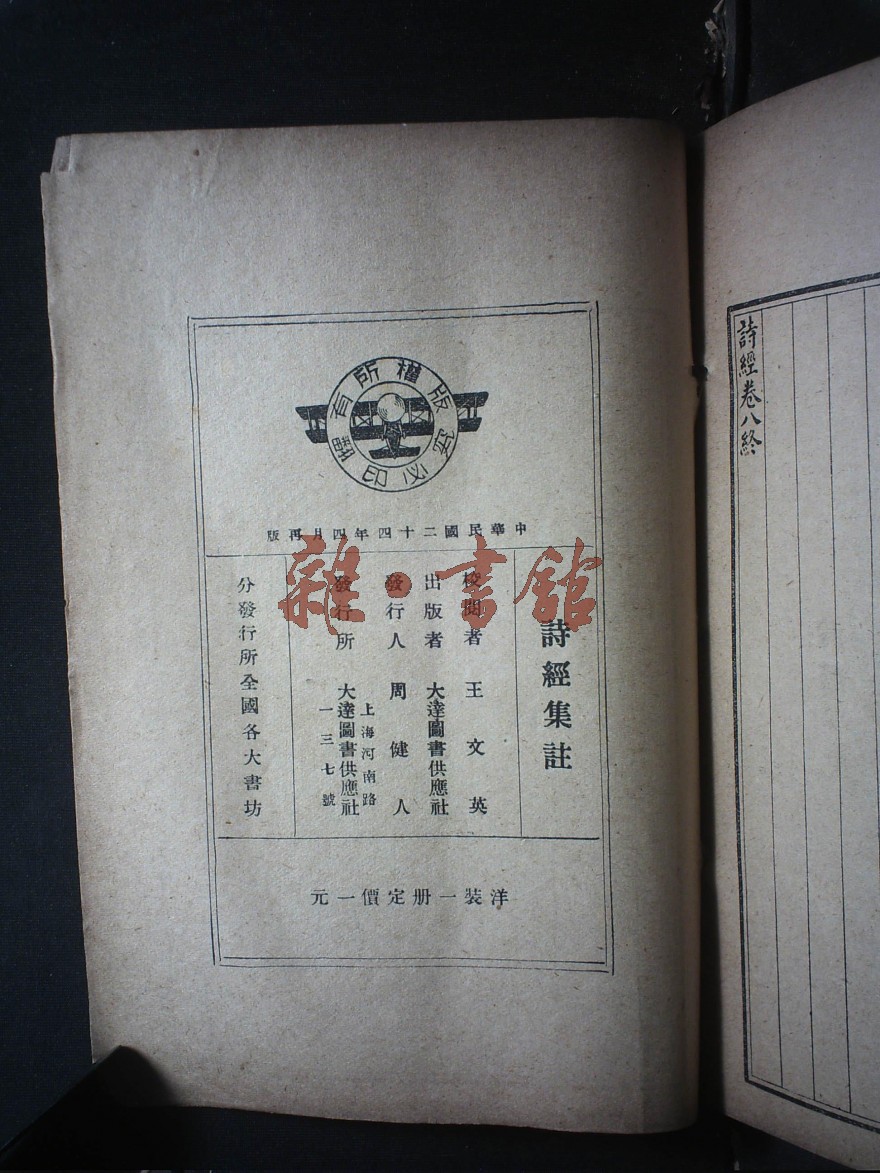 詩經卷八終
版權所有
翻印必究
中華民國二十四年四月再版
詩經集註
校閱者 王文英
出版者 大達圖書供應社
發行人 周健人
上海河南路
發行所 大達圖書供應社
一三七號
分發行所全國各大書坊
洋裝一册定價一元
雜·書館